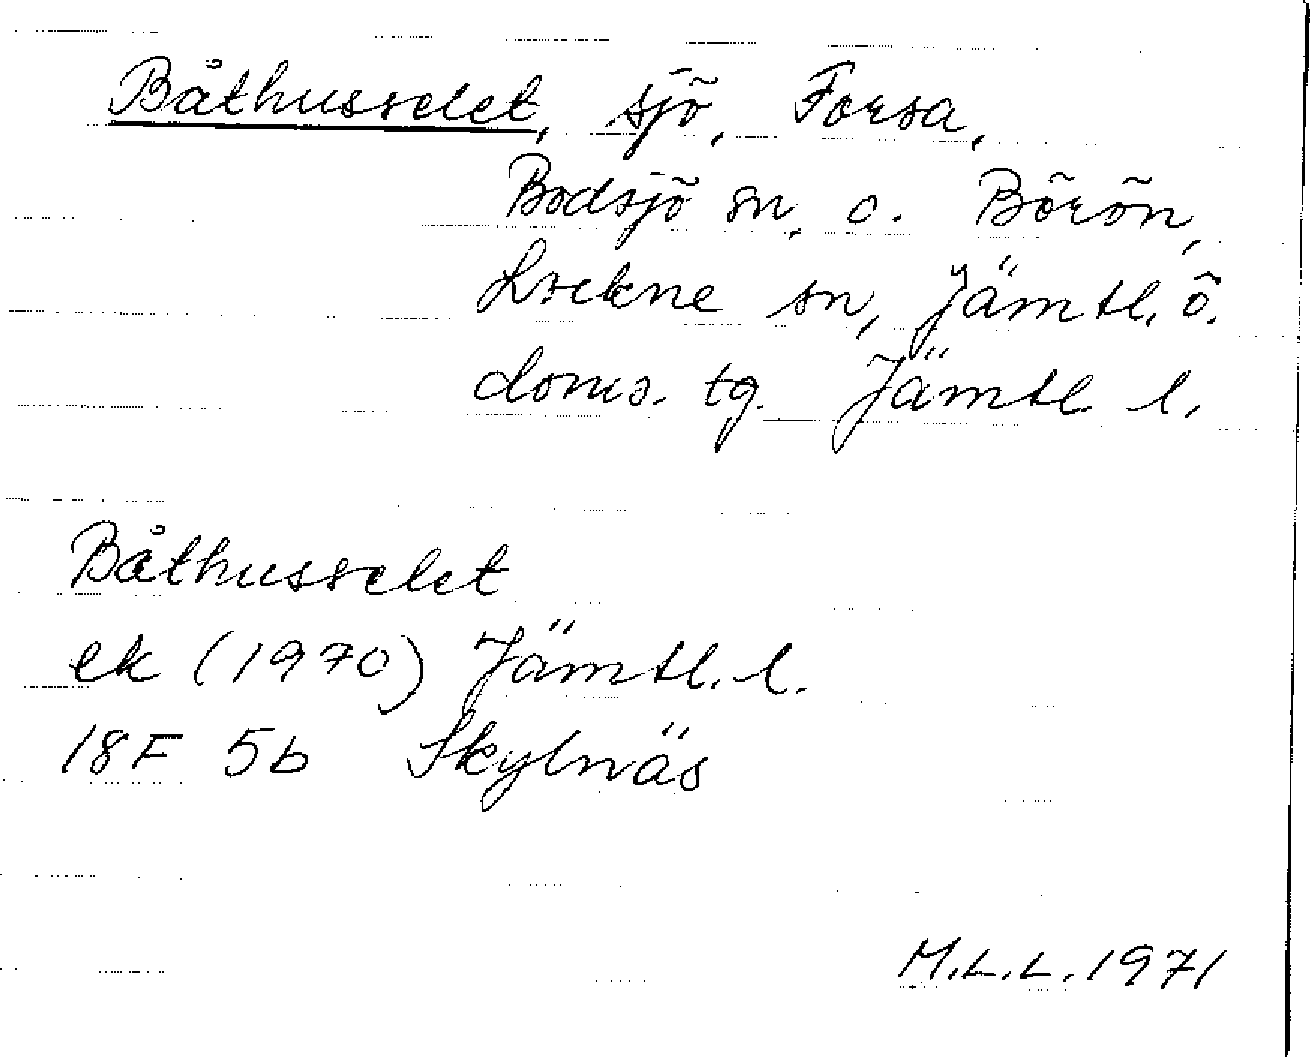 Båthusselet, sjö, Forsa,
Bodsjö sn, o. Börön,
Lockne sn, Jämtl. ö.
doms. tg. Jämtl. l.
Båthusselet
ek (1970) Jämtl. l.
18F 5b Skylnäs
M.L.L. 1971